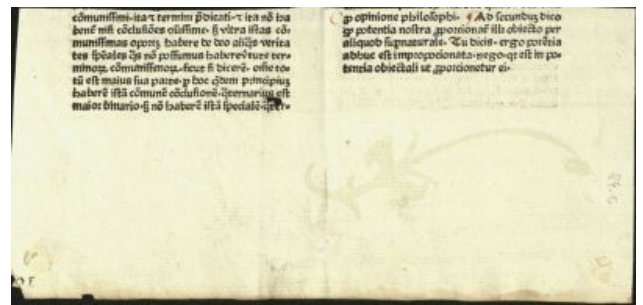 cōmunissimi·ita ⁊ termini p̄dicati·⁊ ita nō ha
benẽ nisi cōclusiões ꝯissime· sꝫ vltra istas cō-
munissimas oportꝫ habere de deo aliq̄s verita
tes sp̄eales q̄s nō possumus haberẽ ture ter-
minoꝝ cōmunissimoꝝ·sicut si dicerẽ· oīsse to-
tū est maius sua parte·ꝓ hoc q̄dem principiuꝫ
haberẽ istā cōmunẽ cōclusionẽ·q̄ternarius est
maior binario·sꝫ nō haberẽ istā sp̄ecialẽ·q̄ter-
ꝙ opinione philosophi· ¶ Ad secunduꝫ dico
ꝙ potentia nostra ꝓporcionāt illi obiecto per
aliquod sup̄naturale· Tu dicis· ergo potētia
adhuc est impropocionata·nego·qꝛ est in po-
tentia obiectali ut ꝓporcionetur ei·